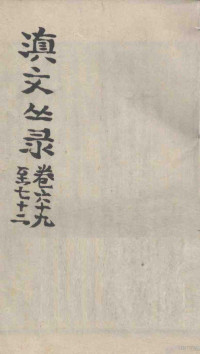 滇文丛录
卷六十九
至七十二